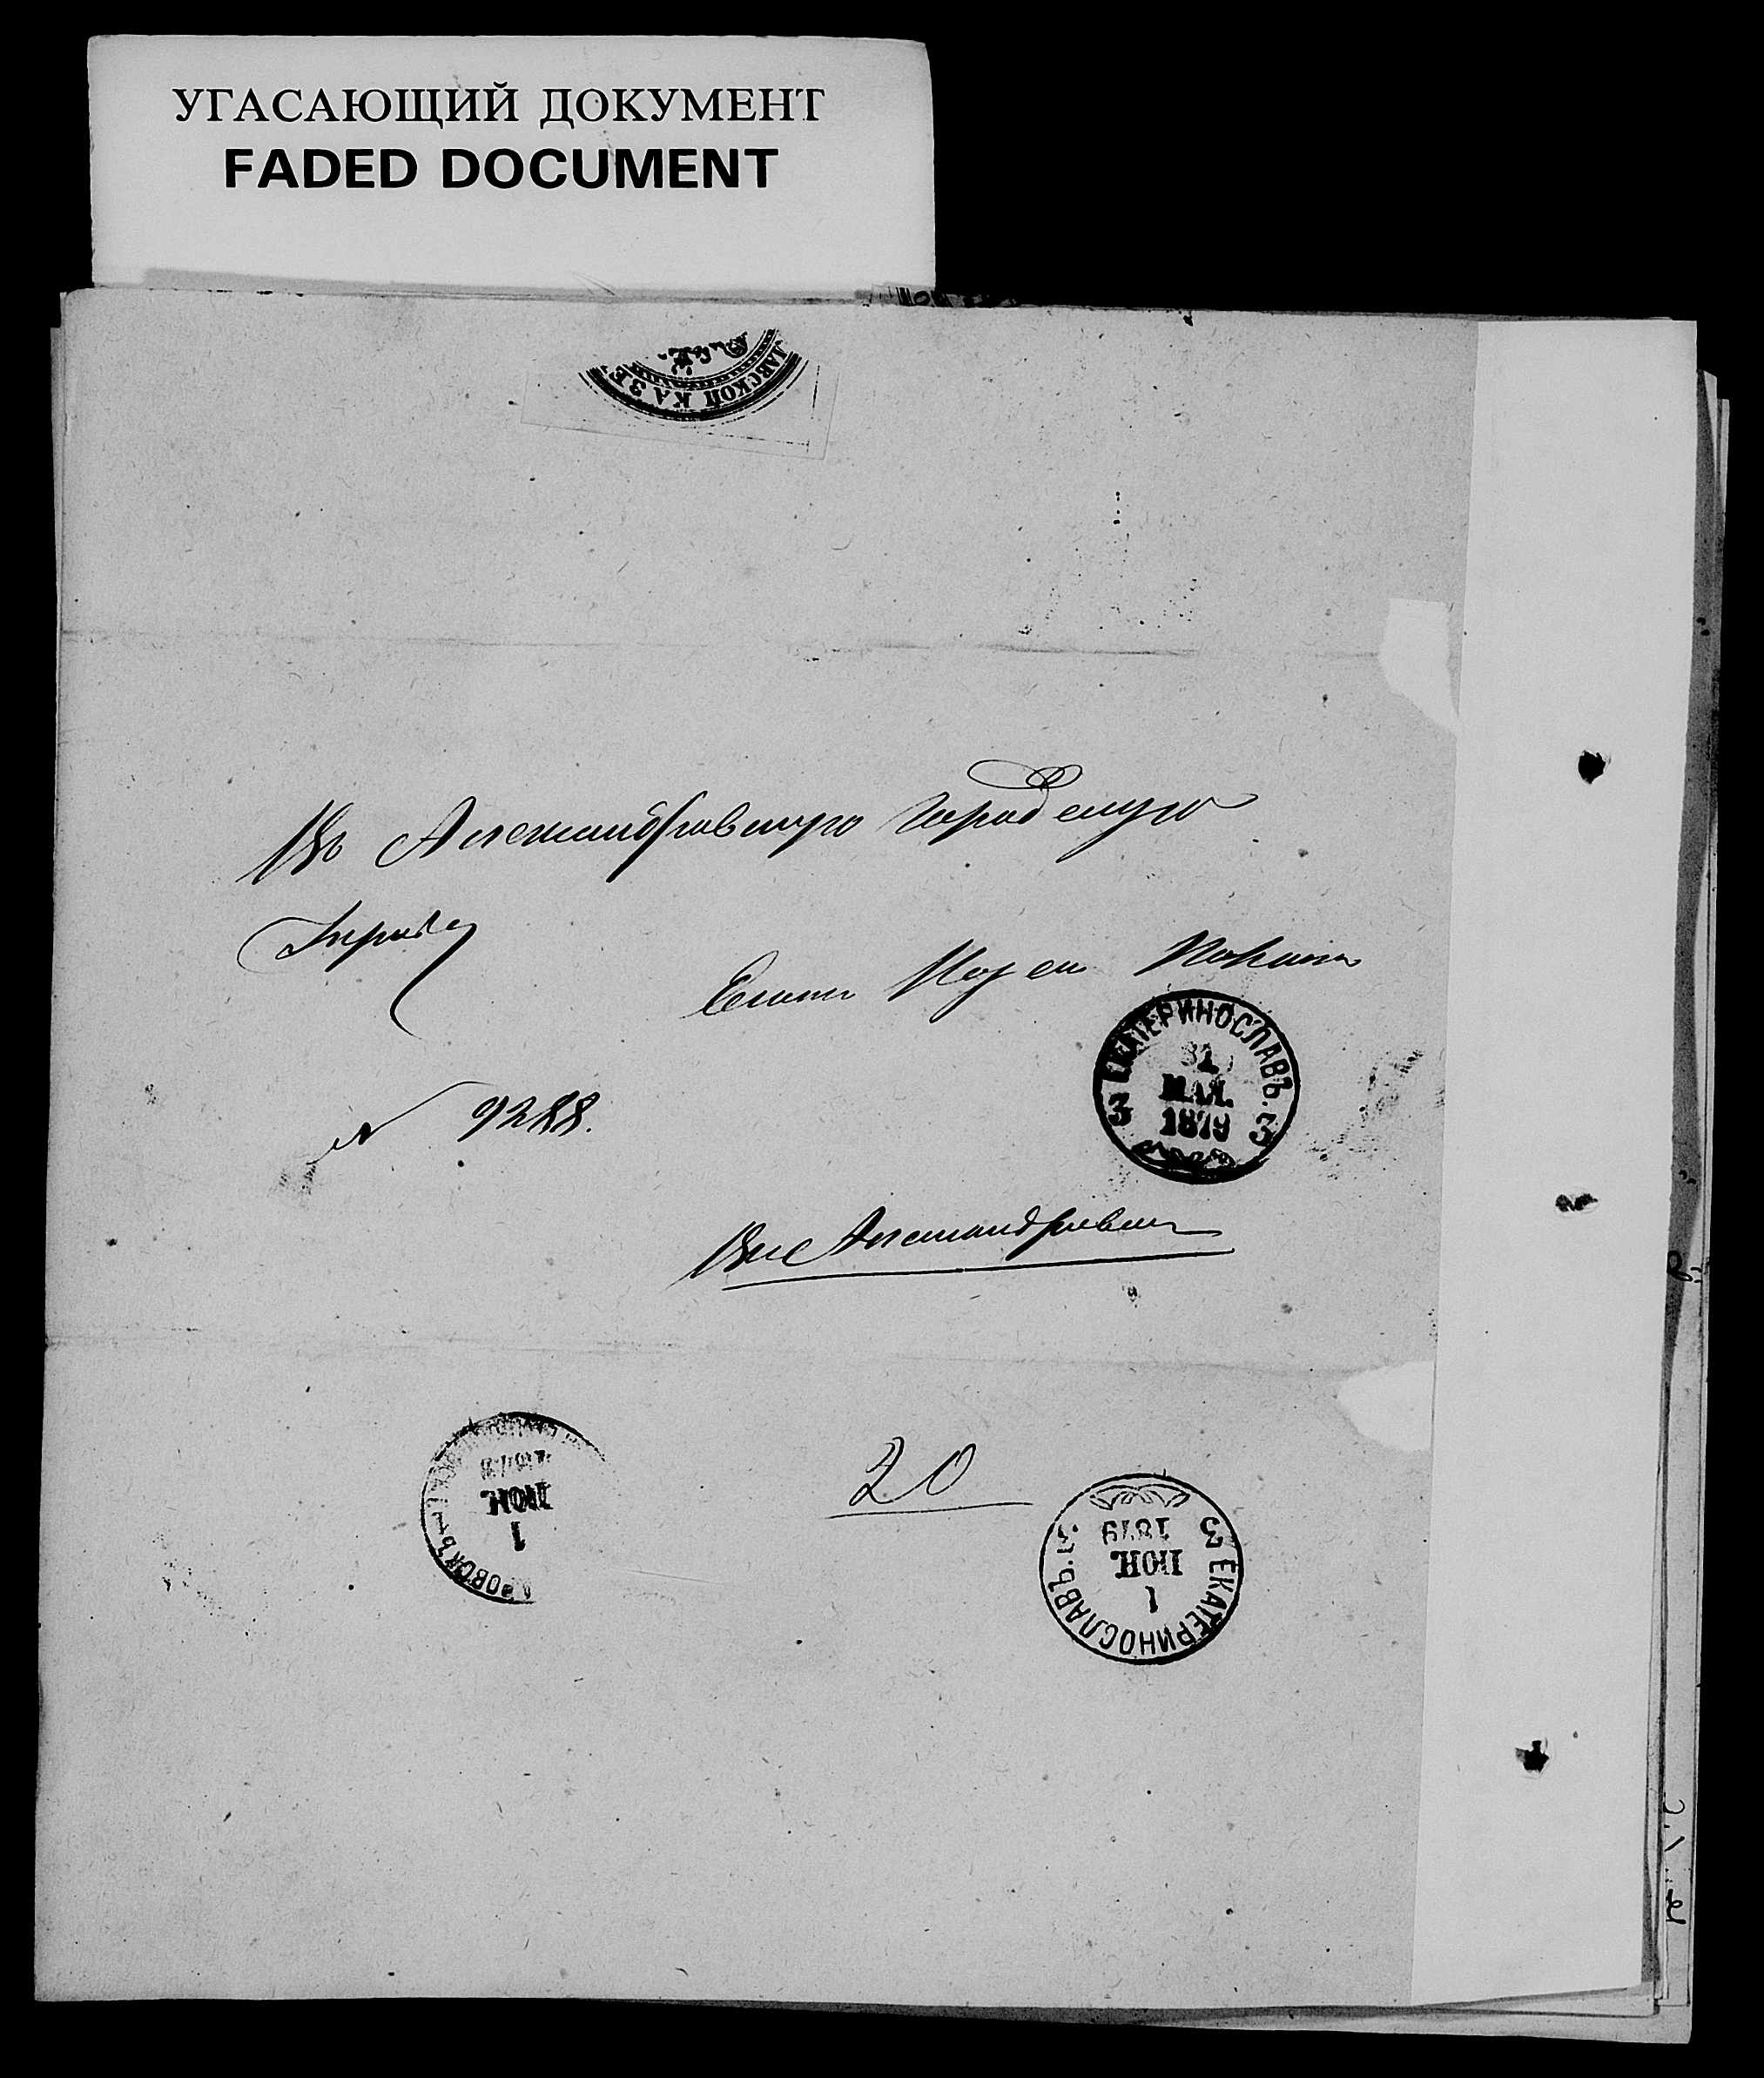 УГАСАЮЩИЙ ДОКУМЕНТ
FADED DOCUMENT
ЛАВСКОЙ КАЗЕ
Въ Александровскую Городскую
Управу
№ 9288.
ЕКАТЕРИНОСЛАВЪ. 3 3
31
МАЯ.
1879
Въ Александровск
20
РОВСКЪ
1
ІЮН.
ЕКАТЕРИНОСЛАВЪ. 3 3
1
ІЮН.
1879